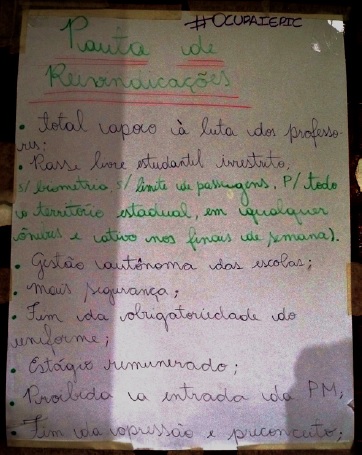 #OCUPAIEPIC
Pauta de
Reivindicações
• Total apoio à luta dos professo-
res;
• Passe livre estudantil irrestrito,
s/ biometria, s/ limite de passagens. P/ todo
o território estadual, em qualquer
ônibus e ativo nos finais de semana).
• Gestão autônoma das escolas;
• Mais segurança;
• Fim da obrigatoriedade do
uniforme;
• Estágio remunerado;
• Proibida a entrada da PM,
• Fim da opressão e preconceito;